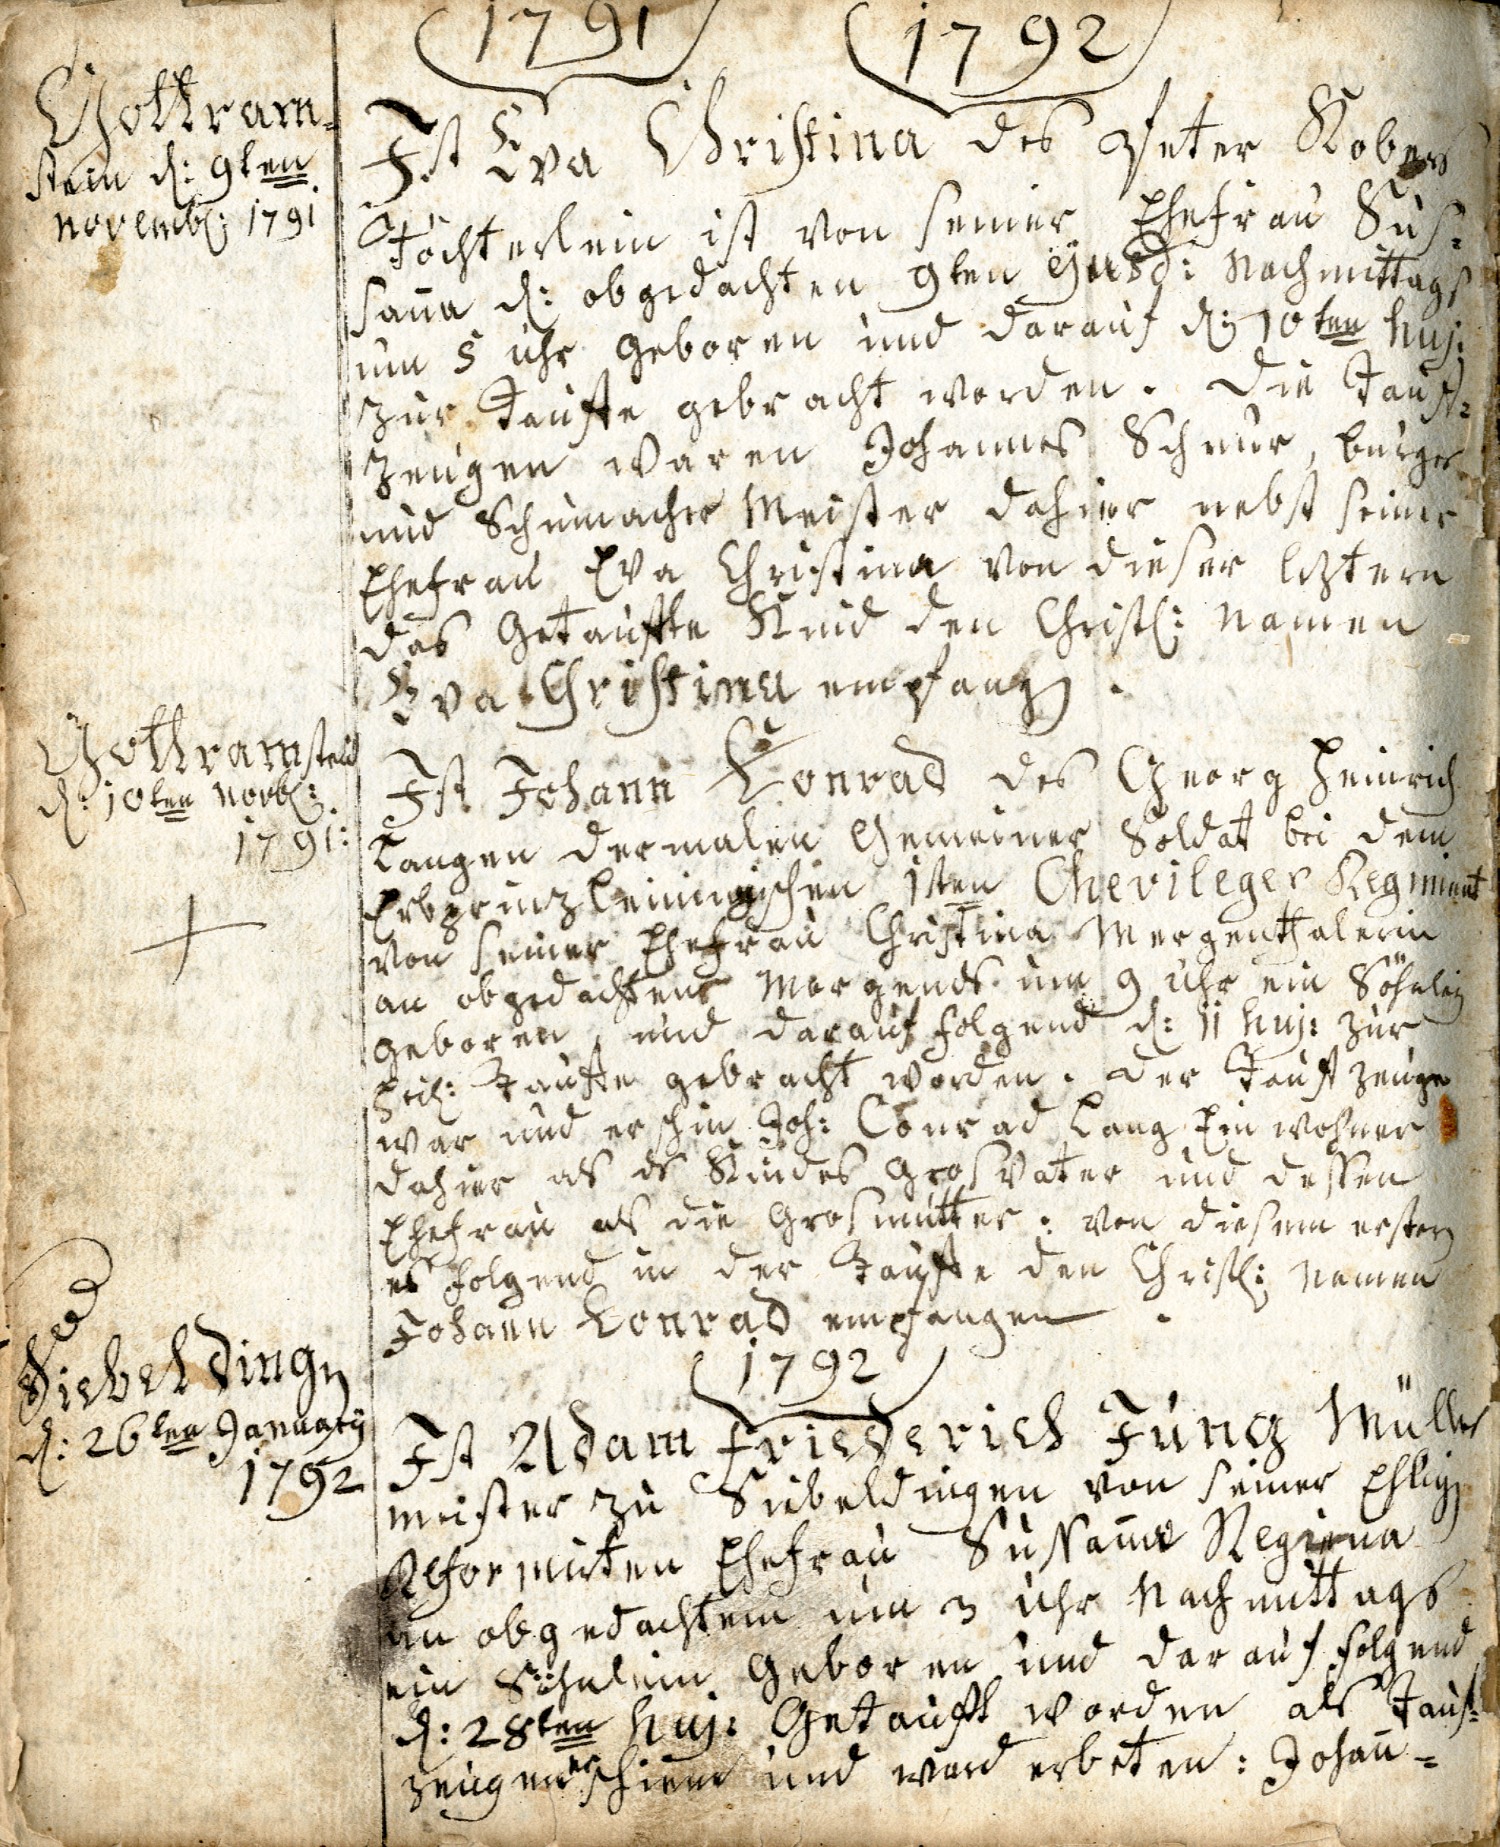 1791 1792
Gottram=
stein d: 9ten
Novembr: 1791
Ist Eva Christina des Peter Kobers
Töchterlein ist von seiner Ehefrau Sus=
sanna d: obgedachten 9ten Nachmittags
um 5 uhr Geboren und darauf d: 10ten huj:
zur Tauffe gebracht worden. Die Tauf=
Zeugen waren Johannes Schnur, burger
und Schumacher Meister dahier nebst seiner
Ehefrau Eva Christina von dieser leztern
das Getauffte Kind den Christl: Namen
Eva Christina empfangen.
Gottramstein
d: 10ten Novbr:
1791:
Ist Johann Konrad des Georg Heinrich
Langen dermalen Gemeiner Soldat bei dem
Erbprinz Leiningischen 1sten Chevileger Regiment
von seiner Ehefrau Christina Mergenthalerin
an obgedachtens Morgends um 9 uhr ein Söhnlein
geboren, und darauf folgend d: 11 huj: zur
Heil: Tauffe gebracht worden. Der Taufzeuge
war und erschin Joh: Conrad Lang Einwohner
dahier als ds Kindes Grosvater und dessen
Ehefrau als die Grosmutter. von diesem erstern
es folgend in der Tauffe den Christl: Namen
Johann Konrad empfangen.
1792
Siebeldingen
d: 26ten January
1792
Ist Adam Friederich Jung Müller
meister zu Siebeldingen von seiner Ehlign
Reformirten Ehefrau Sussanna Regina
an obgedachtem um 3 uhr Nachmittags
ein Söhnlein Geboren und darauf folgend
d: 28ten huj: Getaufft worden als Tauf=
zeugen erschiene und ward erbeten: Johann=